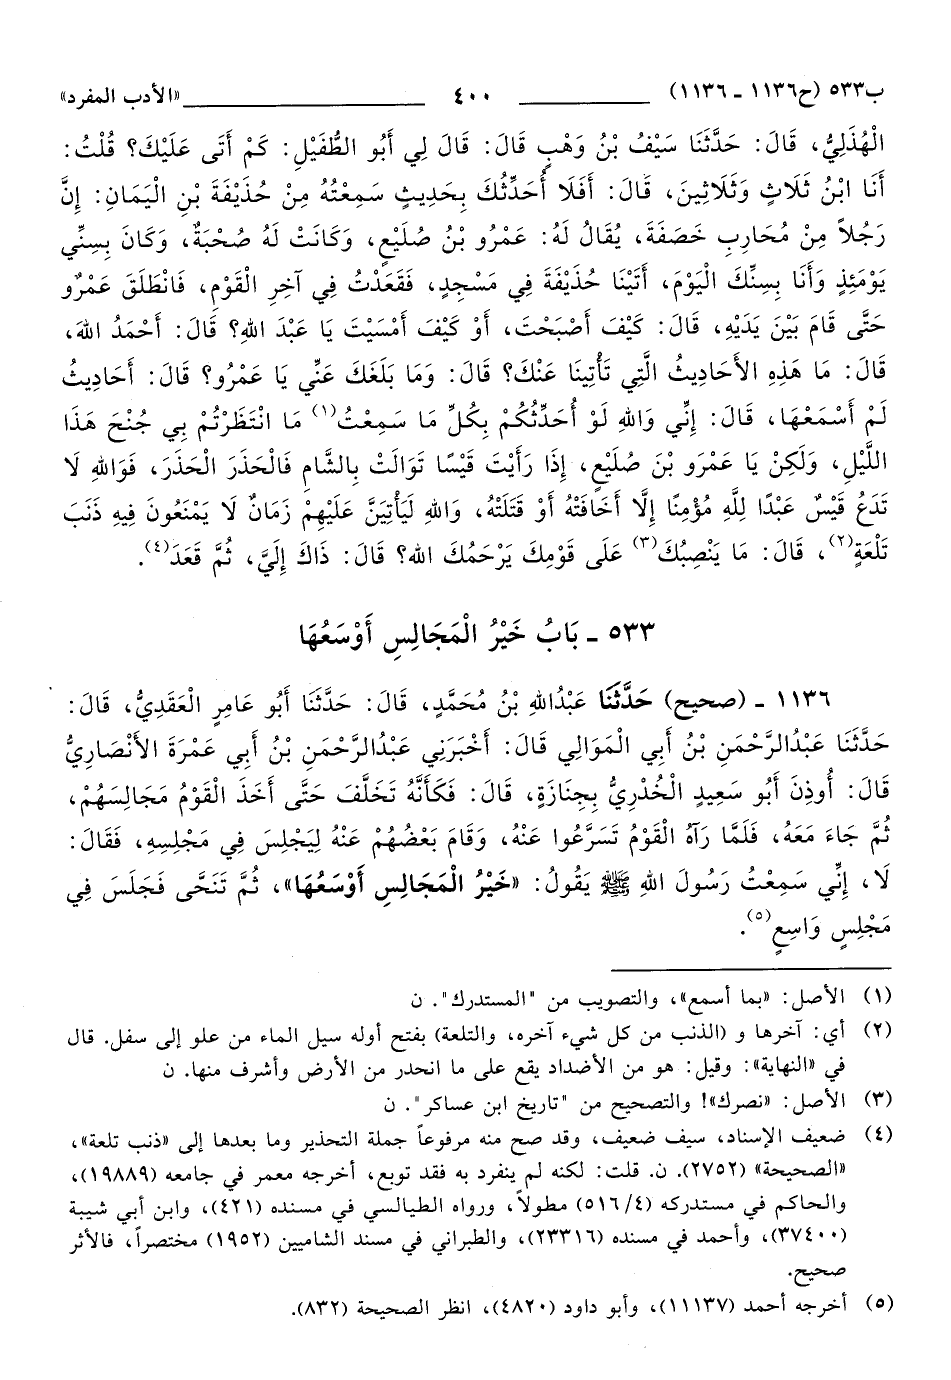 ب٥٣٣ (ح١١٣٦ ـ ١١٣٦) ٤٠٠ «الأدب المفرد»
الْهُذَلِيُّ، قَالَ: حَدَّثَنَا سَيْفُ بْنُ وَهْبٍ قَالَ: قَالَ لِي أَبُو الطُّفَيْلِ: كَمْ أَتَى عَلَيْكَ؟ قُلْتُ:
أَنَا ابْنُ ثَلَاثٍ وَثَلَاثِينَ، قَالَ: أَفَلَا أُحَدِّثُكَ بِحَدِيثٍ سَمِعْتُهُ مِنْ حُذَيْفَةَ بْنِ الْيَمَانِ: إِنَّ
رَجُلاً مِنْ مُحَارِبِ خَصَفَةَ، يُقَالُ لَهُ: عَمْرُو بْنُ صُلَيْعٍ، وَكَانَتْ لَهُ صُحْبَةٌ، وَكَانَ بِسِنِّي
يَوْمَئِذٍ وَأَنَا بِسِنِّكَ الْيَوْمَ، أَتَيْنَا حُذَيْفَةَ فِي مَسْجِدٍ، فَقَعَدْتُ فِي آخِرِ الْقَوْمِ، فَانْطَلَقَ عَمْرٌو
حَتَّى قَامَ بَيْنَ يَدَيْهِ، قَالَ: كَيْفَ أَصْبَحْتَ، أَوْ كَيْفَ أَمْسَيْتَ يَا عَبْدَ اللهِ؟ قَالَ: أَحْمَدُ اللهَ،
قَالَ: مَا هَذِهِ الأَحَادِيثُ الَّتِي تَأْتِينَا عَنْكَ؟ قَالَ: وَمَا بَلَغَكَ عَنِّي يَا عَمْرُو؟ قَالَ: أَحَادِيثُ
لَمْ أَسْمَعْهَا، قَالَ: إِنِّي وَاللهِ لَوْ أُحَدِّثُكُمْ بِكُلِّ مَا سَمِعْتُ(١) مَا انْتَظَرْتُمْ بِي جُنْحَ هَذَا
اللَّيْلِ، وَلَكِنْ يَا عَمْرَو بْنَ صُلَيْعٍ، إِذَا رَأَيْتَ قَيْسًا تَوَالَتْ بِالشَّامِ فَالْحَذَرَ الْحَذَرَ، فَوَاللهِ لَا
تَدَعُ قَيْسٌ عَبْدًا لِلَّهِ مُؤْمِنًا إِلَّا أَخَافَتْهُ أَوْ قَتَلَتْهُ، وَاللهِ لَيَأْتِيَنَّ عَلَيْهِمْ زَمَانٌ لَا يَمْنَعُونَ فِيهِ ذَنَبَ
تَلْعَةٍ(٢)، قَالَ: مَا يَنْصِبُكَ(٣) عَلَى قَوْمِكَ يَرْحَمُكَ الله؟ قَالَ: ذَاكَ إِلَيَّ، ثُمَّ قَعَدَ(٤).
٥٣٣ ـ بَابُ خَيْرُ الْمَجَالِسِ أَوْسَعُهَا
١١٣٦ ـ (صحيح) حَدَّثَنَا عَبْدُاللهِ بْنُ مُحَمَّدٍ، قَالَ: حَدَّثَنَا أَبُو عَامِرٍ الْعَقَدِيُّ، قَالَ:
حَدَّثَنَا عَبْدُالرَّحْمَنِ بْنُ أَبِي الْمَوَالِي قَالَ: أَخْبَرَنِي عَبْدُالرَّحْمَنِ بْنُ أَبِي عَمْرَةَ الأَنْصَارِيُّ
قَالَ: أُوذِنَ أَبُو سَعِيدٍ الْخُدْرِيُّ بِجِنَازَةٍ، قَالَ: فَكَأَنَّهُ تَخَلَّفَ حَتَّى أَخَذَ الْقَوْمُ مَجَالِسَهُمْ،
ثُمَّ جَاءَ مَعَهُ، فَلَمَّا رَآهُ الْقَوْمُ تَسَرَّعُوا عَنْهُ، وَقَامَ بَعْضُهُمْ عَنْهُ لِيَجْلِسَ فِي مَجْلِسِهِ، فَقَالَ:
لَا، إِنِّي سَمِعْتُ رَسُولَ اللهِ ﷺ يَقُولُ: «خَيْرُ الْمَجَالِسِ أَوْسَعُهَا»، ثُمَّ تَنَحَّى فَجَلَسَ فِي
مَجْلِسٍ وَاسِعٍ(٥).
(١) الأصل: «بما أسمع»، والتصويب من "المستدرك". ن
(٢) أي: آخرها و (الذنب من كل شيء آخره، والتلعة) بفتح أوله سيل الماء من علو إلى سفل. قال
في «النهاية»: وقيل: هو من الأضداد يقع على ما انحدر من الأرض وأشرف منها. ن
(٣) الأصل: «نصرك»! والتصحيح من "تاريخ ابن عساكر". ن
(٤) ضعيف الإسناد، سيف ضعيف، وقد صح منه مرفوعاً جملة التحذير وما بعدها إلى «ذنب تلعة»،
«الصحيحة» (٢٧٥٢). ن. قلت: لكنه لم ينفرد به فقد توبع، أخرجه معمر في جامعه (١٩٨٨٩)،
والحاكم في مستدركه (٥١٦/٤) مطولاً، ورواه الطيالسي في مسنده (٤٢١)، وابن أبي شيبة
(٣٧٤٠٠)، وأحمد في مسنده (٢٣٣١٦)، والطبراني في مسند الشاميين (١٩٥٢) مختصراً، فالأثر
صحيح.
(٥) أخرجه أحمد (١١١٣٧)، وأبو داود (٤٨٢٠)، انظر الصحيحة (٨٣٢).